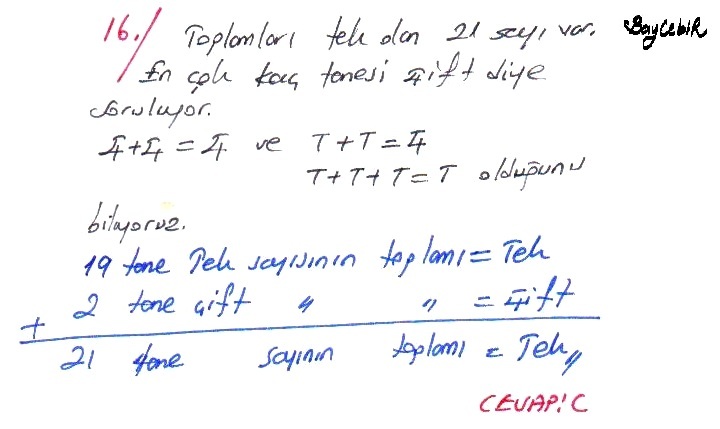 16./ Toplamları tek olan 21 sayı var. BayCebiR
En çok kaç tanesi çift diye
soruluyor.
Ç+Ç = Ç ve T+T = Ç
T+T+T=T olduğunu
biliyoruz.
19 tane Tek sayısının toplamı = Tek
+ 2 tane çift " " = Çift
21 tane sayının toplamı = Tek//
CEVAP: C